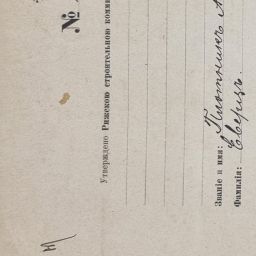 №
Утверждено Рижскою строительною комм
Званіе и имя: Плотникъ
Фамилія: Сверизъ